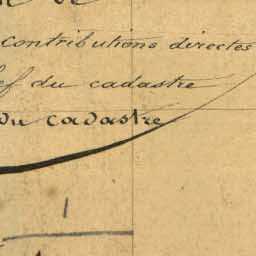 contributions directes
ef du cadastre
du cadastre